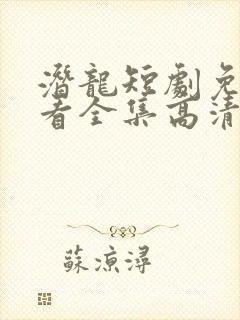 潛龍短劇免
看全集高清
蘇涼潯